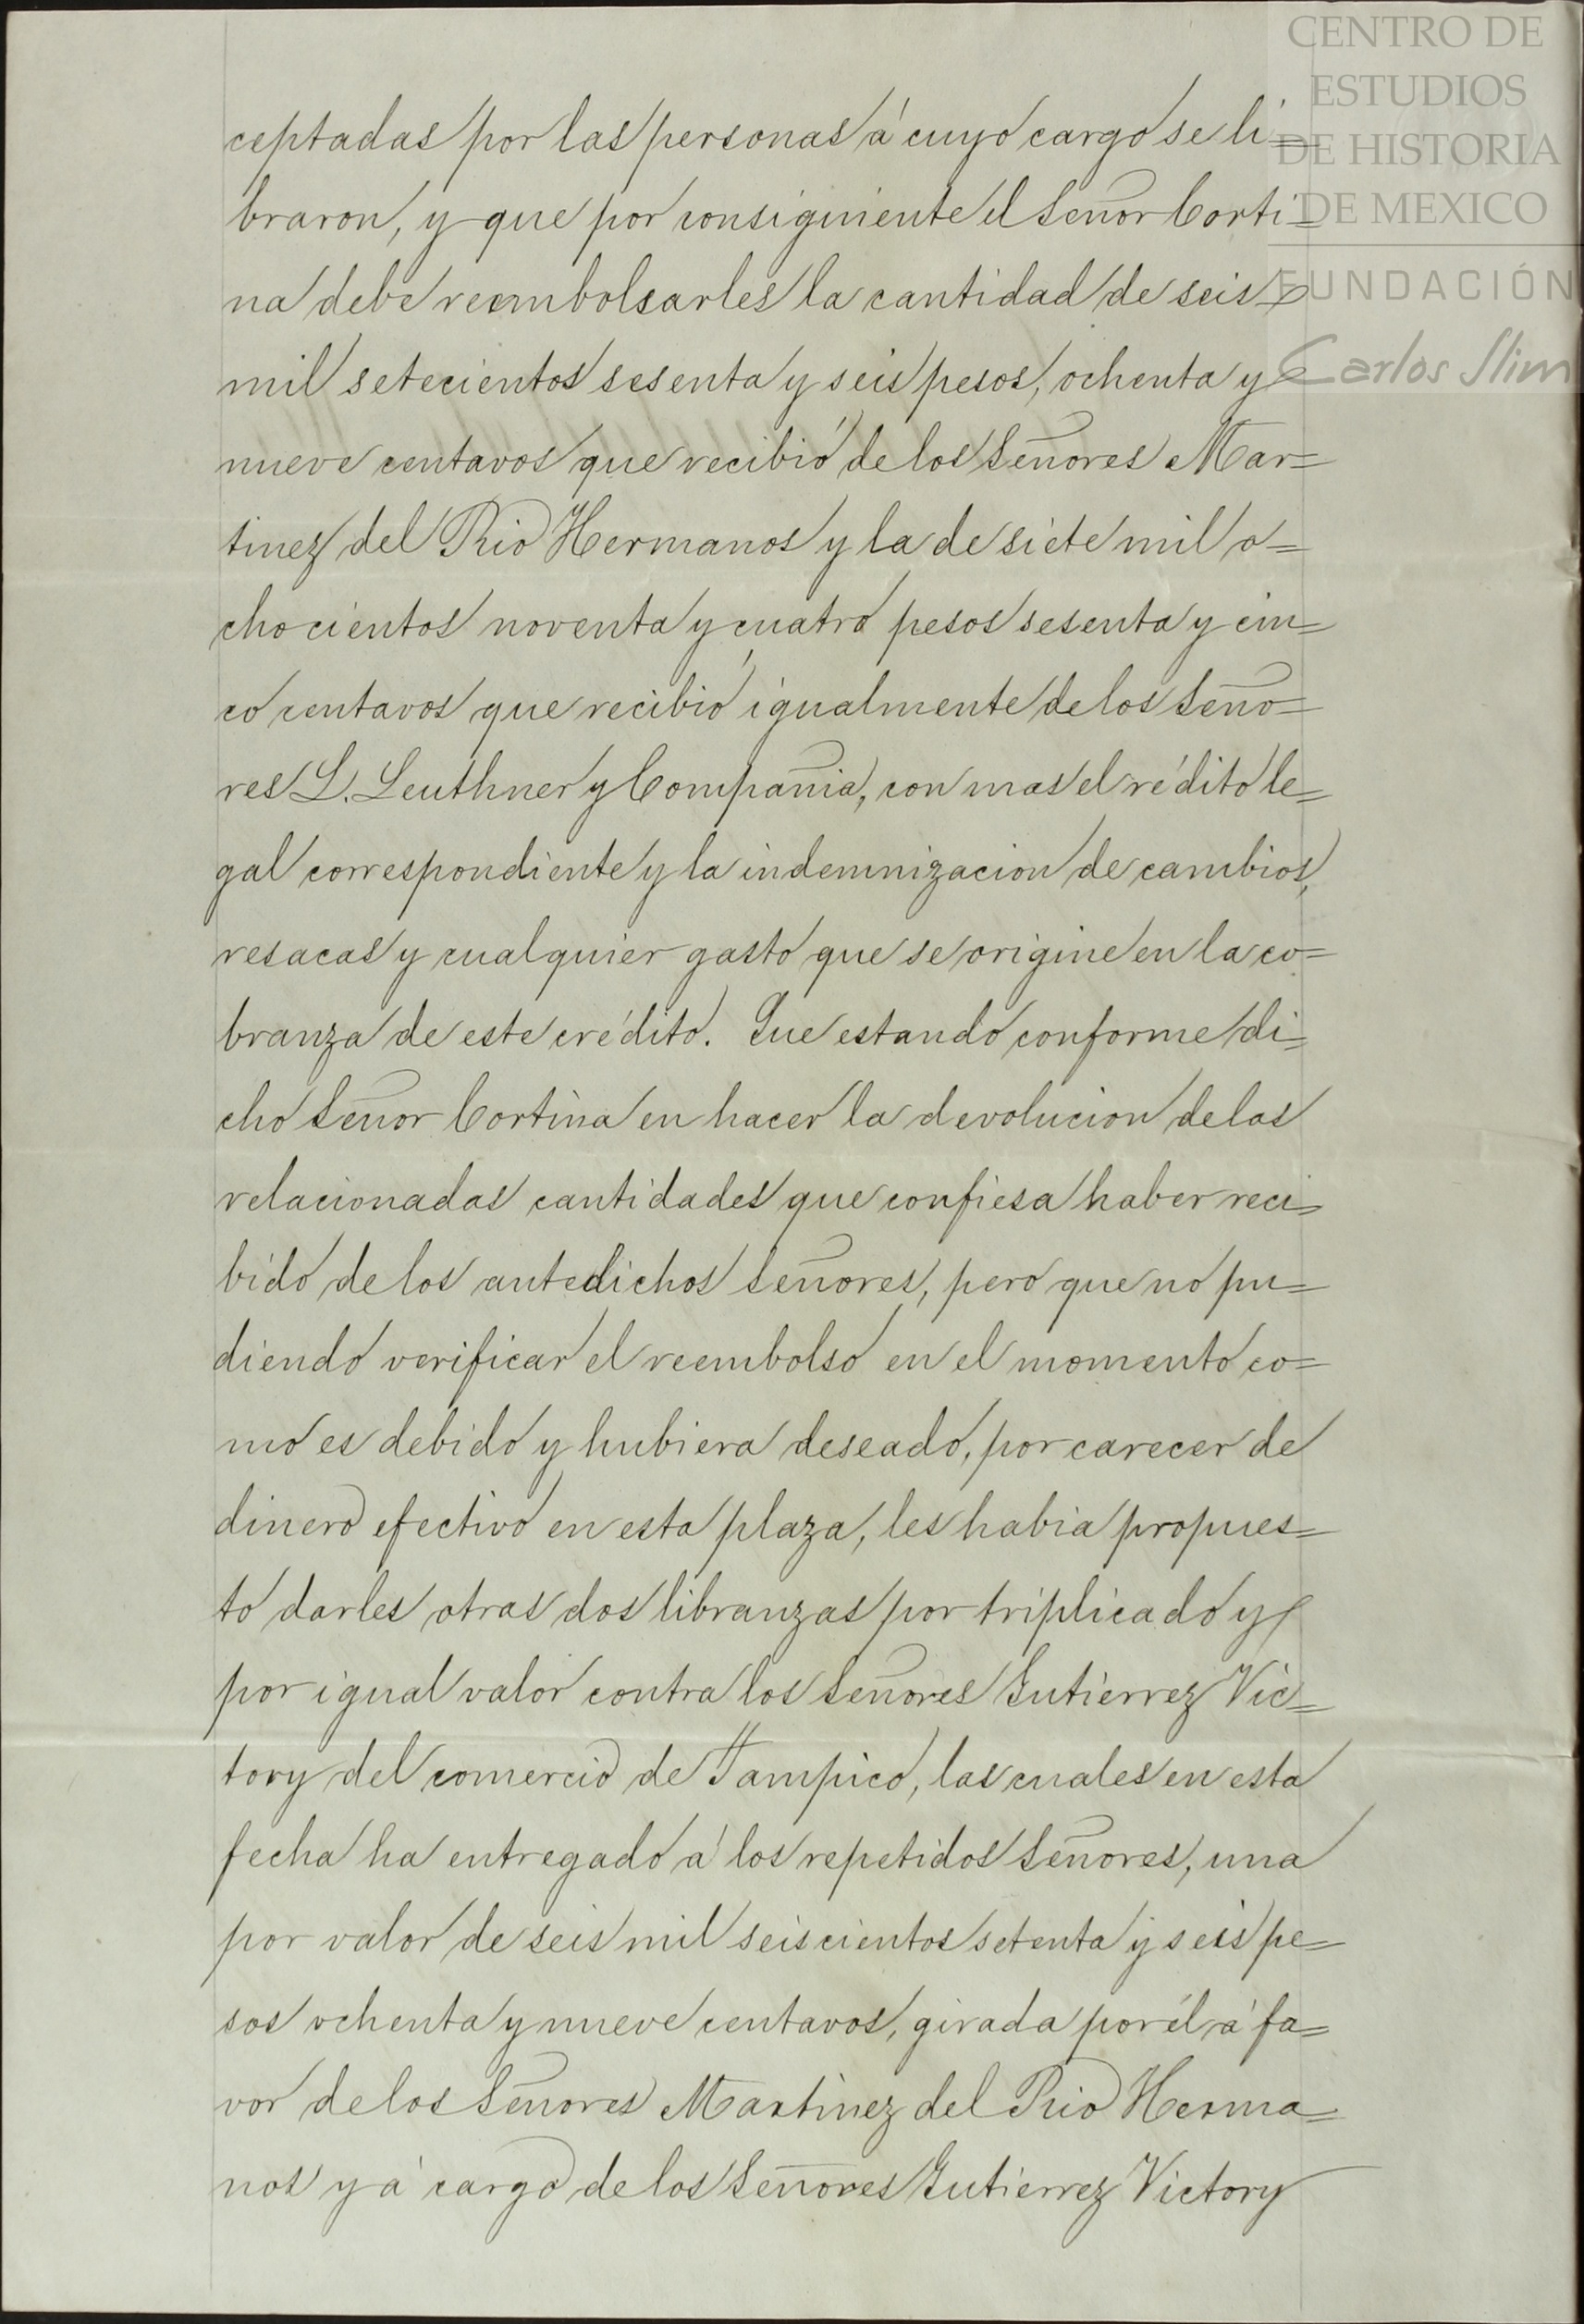 CENTRO DE
ESTUDIOS
DE HISTORIA
DE MEXICO
FUNDACIÓN
Carlos Slim
ceptadas por las personas á cuyo cargo se li=
braron, y que por consiguiente el Señor Corti=
na debe reembolsarles la cantidad de seis
mil setecientos sesenta y seis pesos, ochenta y
nueve centavos que recibió de los Señores Mar=
tinez del Rio Hermanos y la de siete mil o=
chocientos noventa y cuatro pesos sesenta y cin=
co centavos que recibió igualmente de los Seño=
res L. Leuthner y Compañia, con mas el rédito le=
gal correspondiente y la indemnizacion de cambios,
resacas y cualquier gasto que se origine en la co=
branza de este crédito. Que estando conforme di=
cho Señor Cortina en hacer la devolucion de las
relacionadas cantidades que confiesa haber reci=
bido de los antedichos Señores, pero que no pu=
diendo verificar el reembolso en el momento co=
mo es debido y hubiera deseado, por carecer de
dinero efectivo en esta plaza, les habia propues=
to darles otras dos libranzas por triplicado y
por igual valor contra los Señores Gutierrez Vic=
tory del comercio de Tampico, las cuales en esta
fecha ha entregado á los repetidos Señores, una
por valor de seis mil seiscientos setenta y seis pe=
sos ochenta y nueve centavos, girada por él á fa=
vor de los Señores Martinez del Rio Herma=
nos y á cargo de los Señores Gutierrez Victory